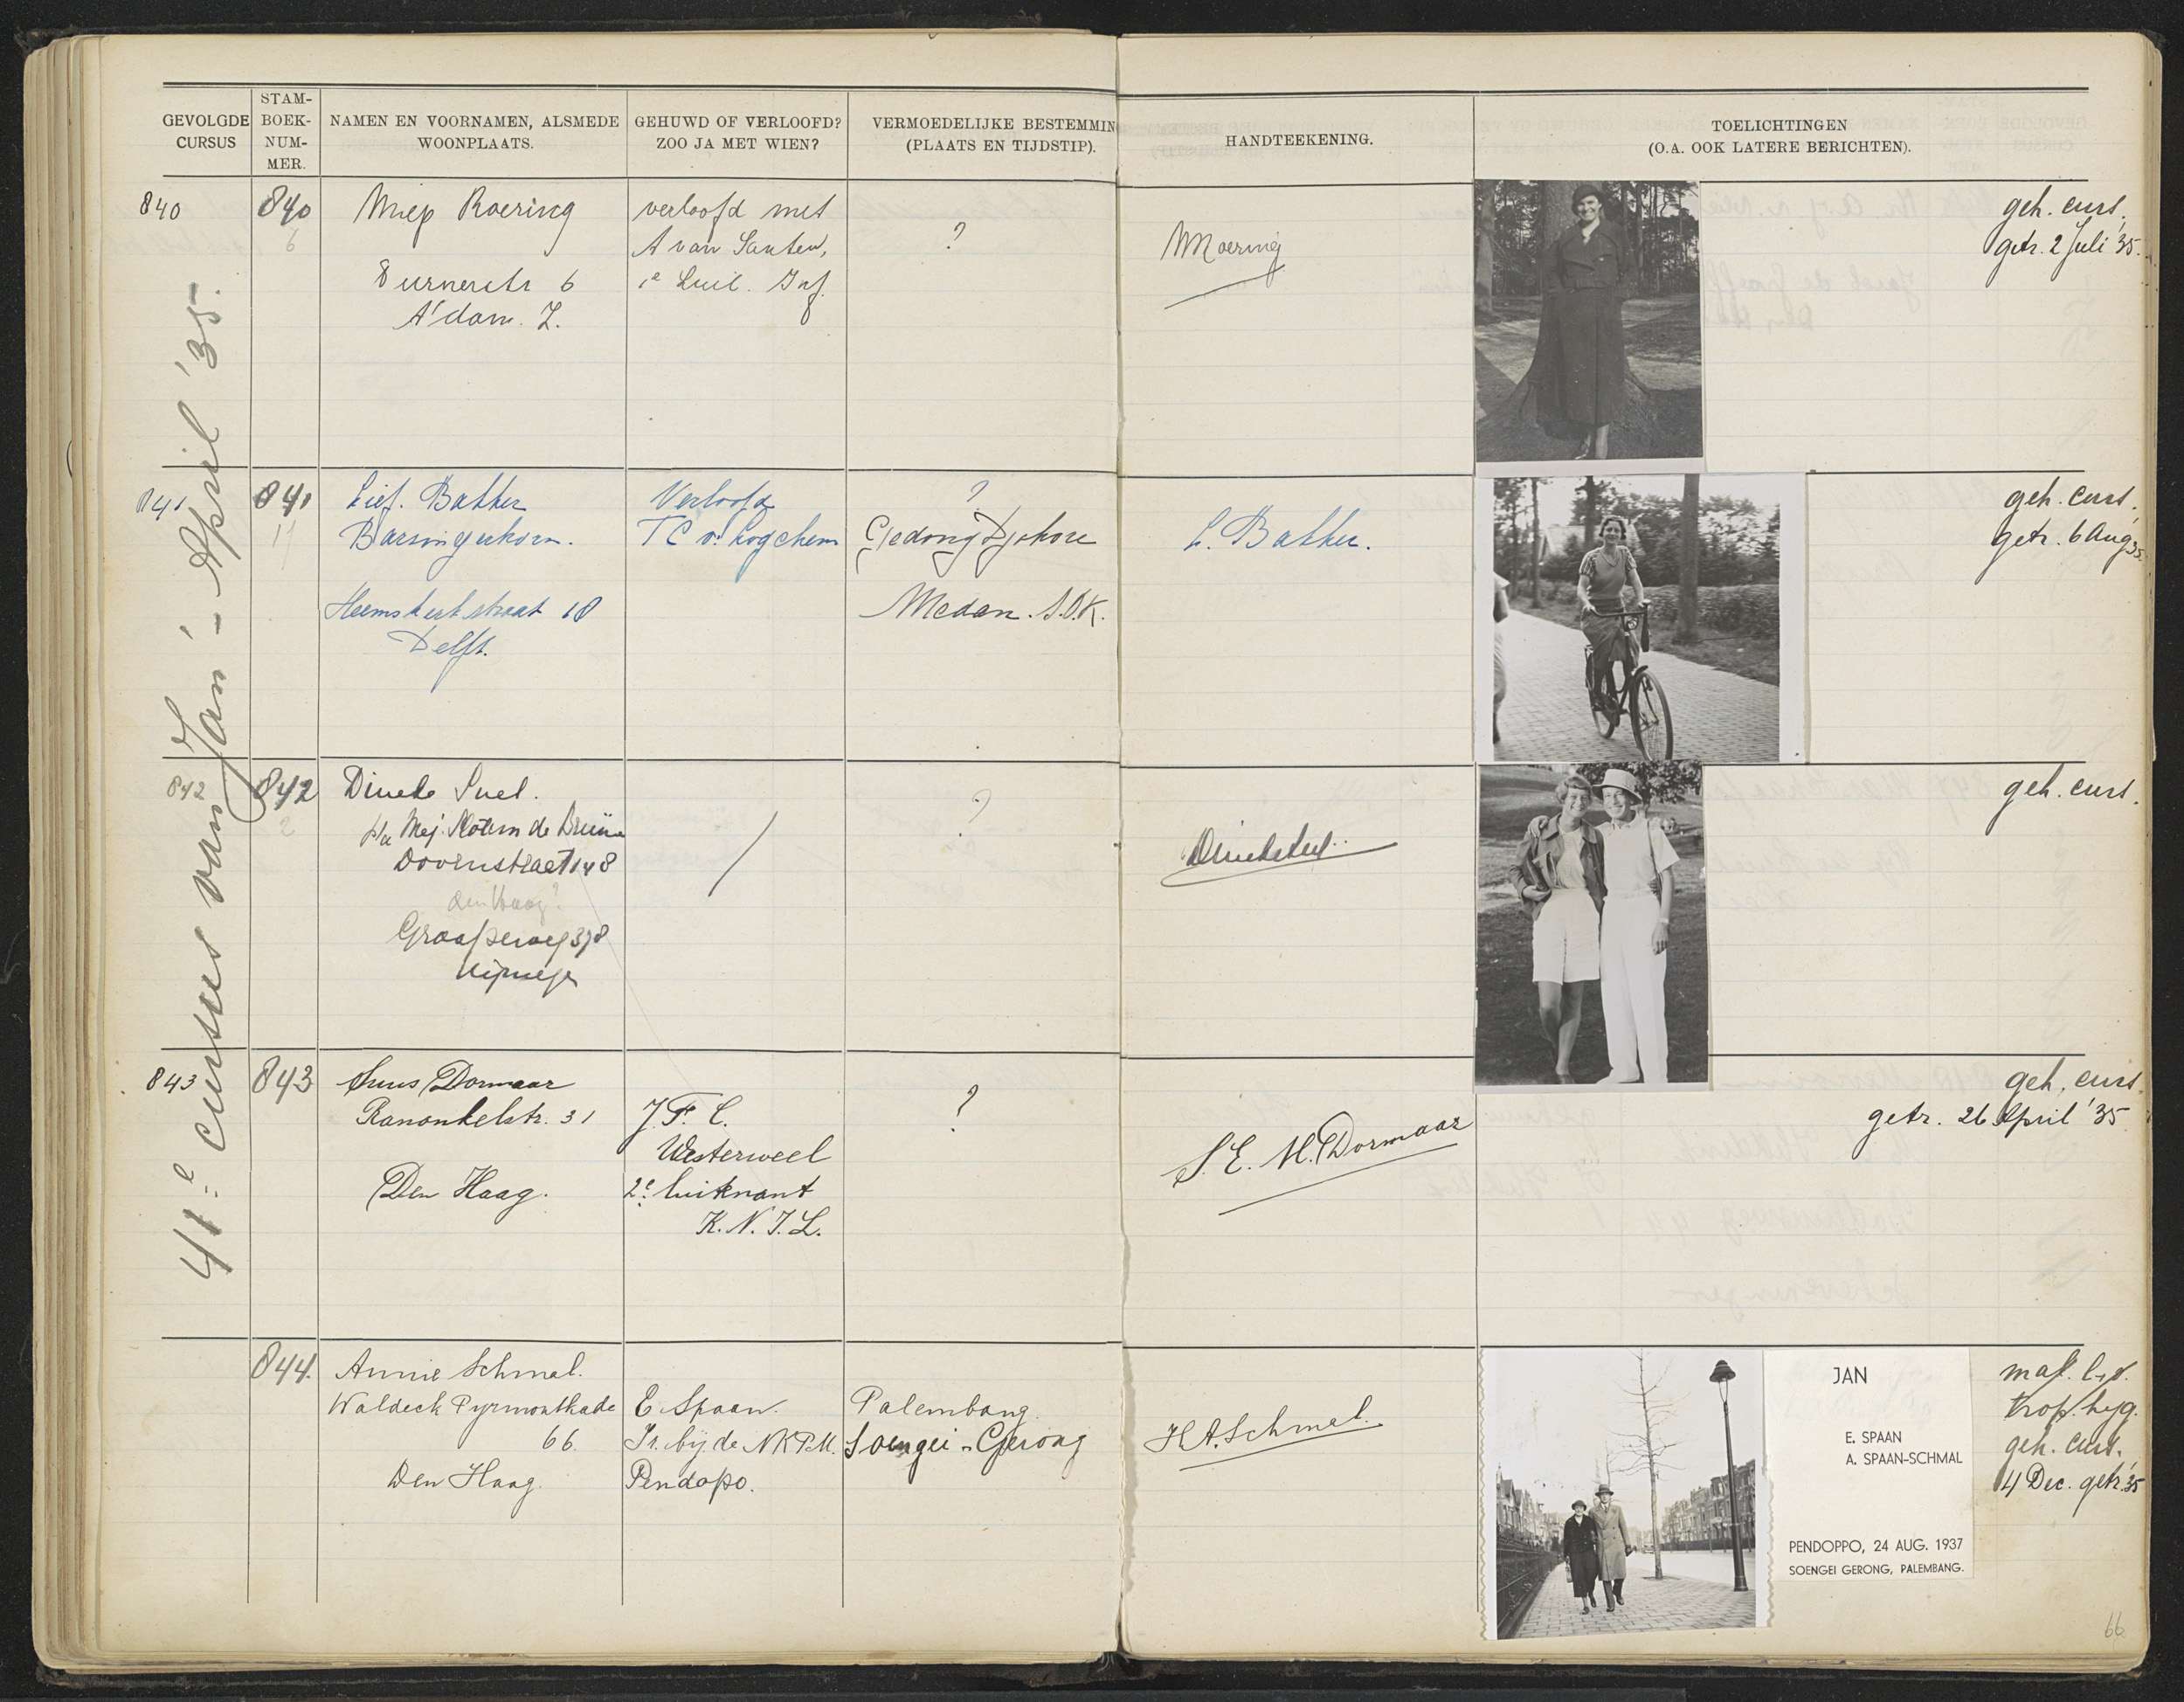 GEVOLGDE
CURSUS
STAM-
BOEK-
NUM-
MER.
NAMEN EN VOORNAMEN, ALSMEDE
WOONPLAATS.
GEHUWD OF VERLOOFD?
ZOO JA MET WIEN?
VERMOEDELIJKE BESTEMMIN
(PLAATS EN TIJDSTIP).
HANDTEEKENING.
TOELICHTINGEN
(O.A. OOK LATERE BERICHTEN).
41e cursus van Jan' - April '35.
840
840
6
Miep Roering
6
A'dam. Z.
verloofd met
A van Santen,
1e Luit. Inf.
?
geh. curs.
getr. 2 Juli '35.
841
841
11
Lief. Bakker
Barsingerhorn.
Heemskerkstraat 18
Delft.
Verloofd
T C v. Logchem
?
Gedong Djohore
Medan. S.O.K.
L. Bakker.
geh. curs.
getr. 6 Aug 35.
842
842
2
Dineke Snel.
p/a Mej. Slotem. de Bruine
Doornstraat 148
den Haag?
Graafseweg 378
Nijmegen
/
?
Dineke Snel..
geh. curs.
843
843
Suus Dormaar
Ranonkelstr. 31
Den Haag.
J. F. C.
Westerweel
2e luitenant
K. N. I. L.
?
S. E. M. Dormaar
geh. curs.
getr. 26 April '35
844.
Annie Schmal.
Waldeck Pyrmontkade
66.
Den Haag.
E. Spaan.
Ir. bij de NKPM.
Pendopo.
Palembang.
Soengei-Gerong
H A. Schmal.
JAN
E. SPAAN
A. SPAAN-SCHMAL
PENDOPPO, 24 AUG. 1937
SOENGEI GERONG, PALEMBANG.
trop. hyg.
geh. curs.
4 Dec. getr. '35
66